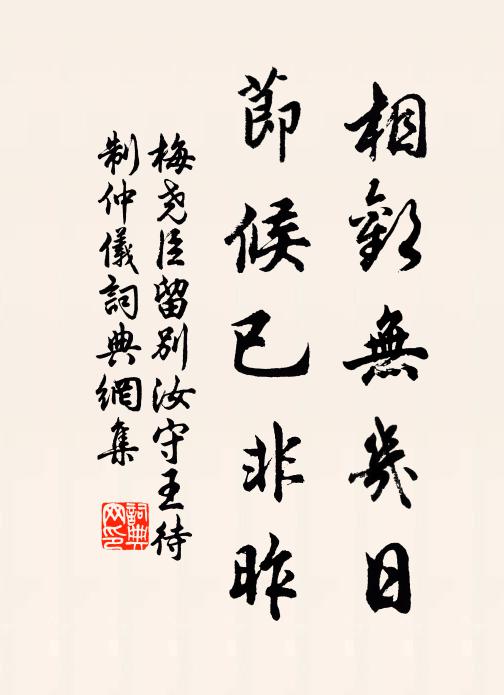 相歡無幾日
節候已非昨
梅尧臣留別汝守王待
制仲儀詞典網集
詞典网印